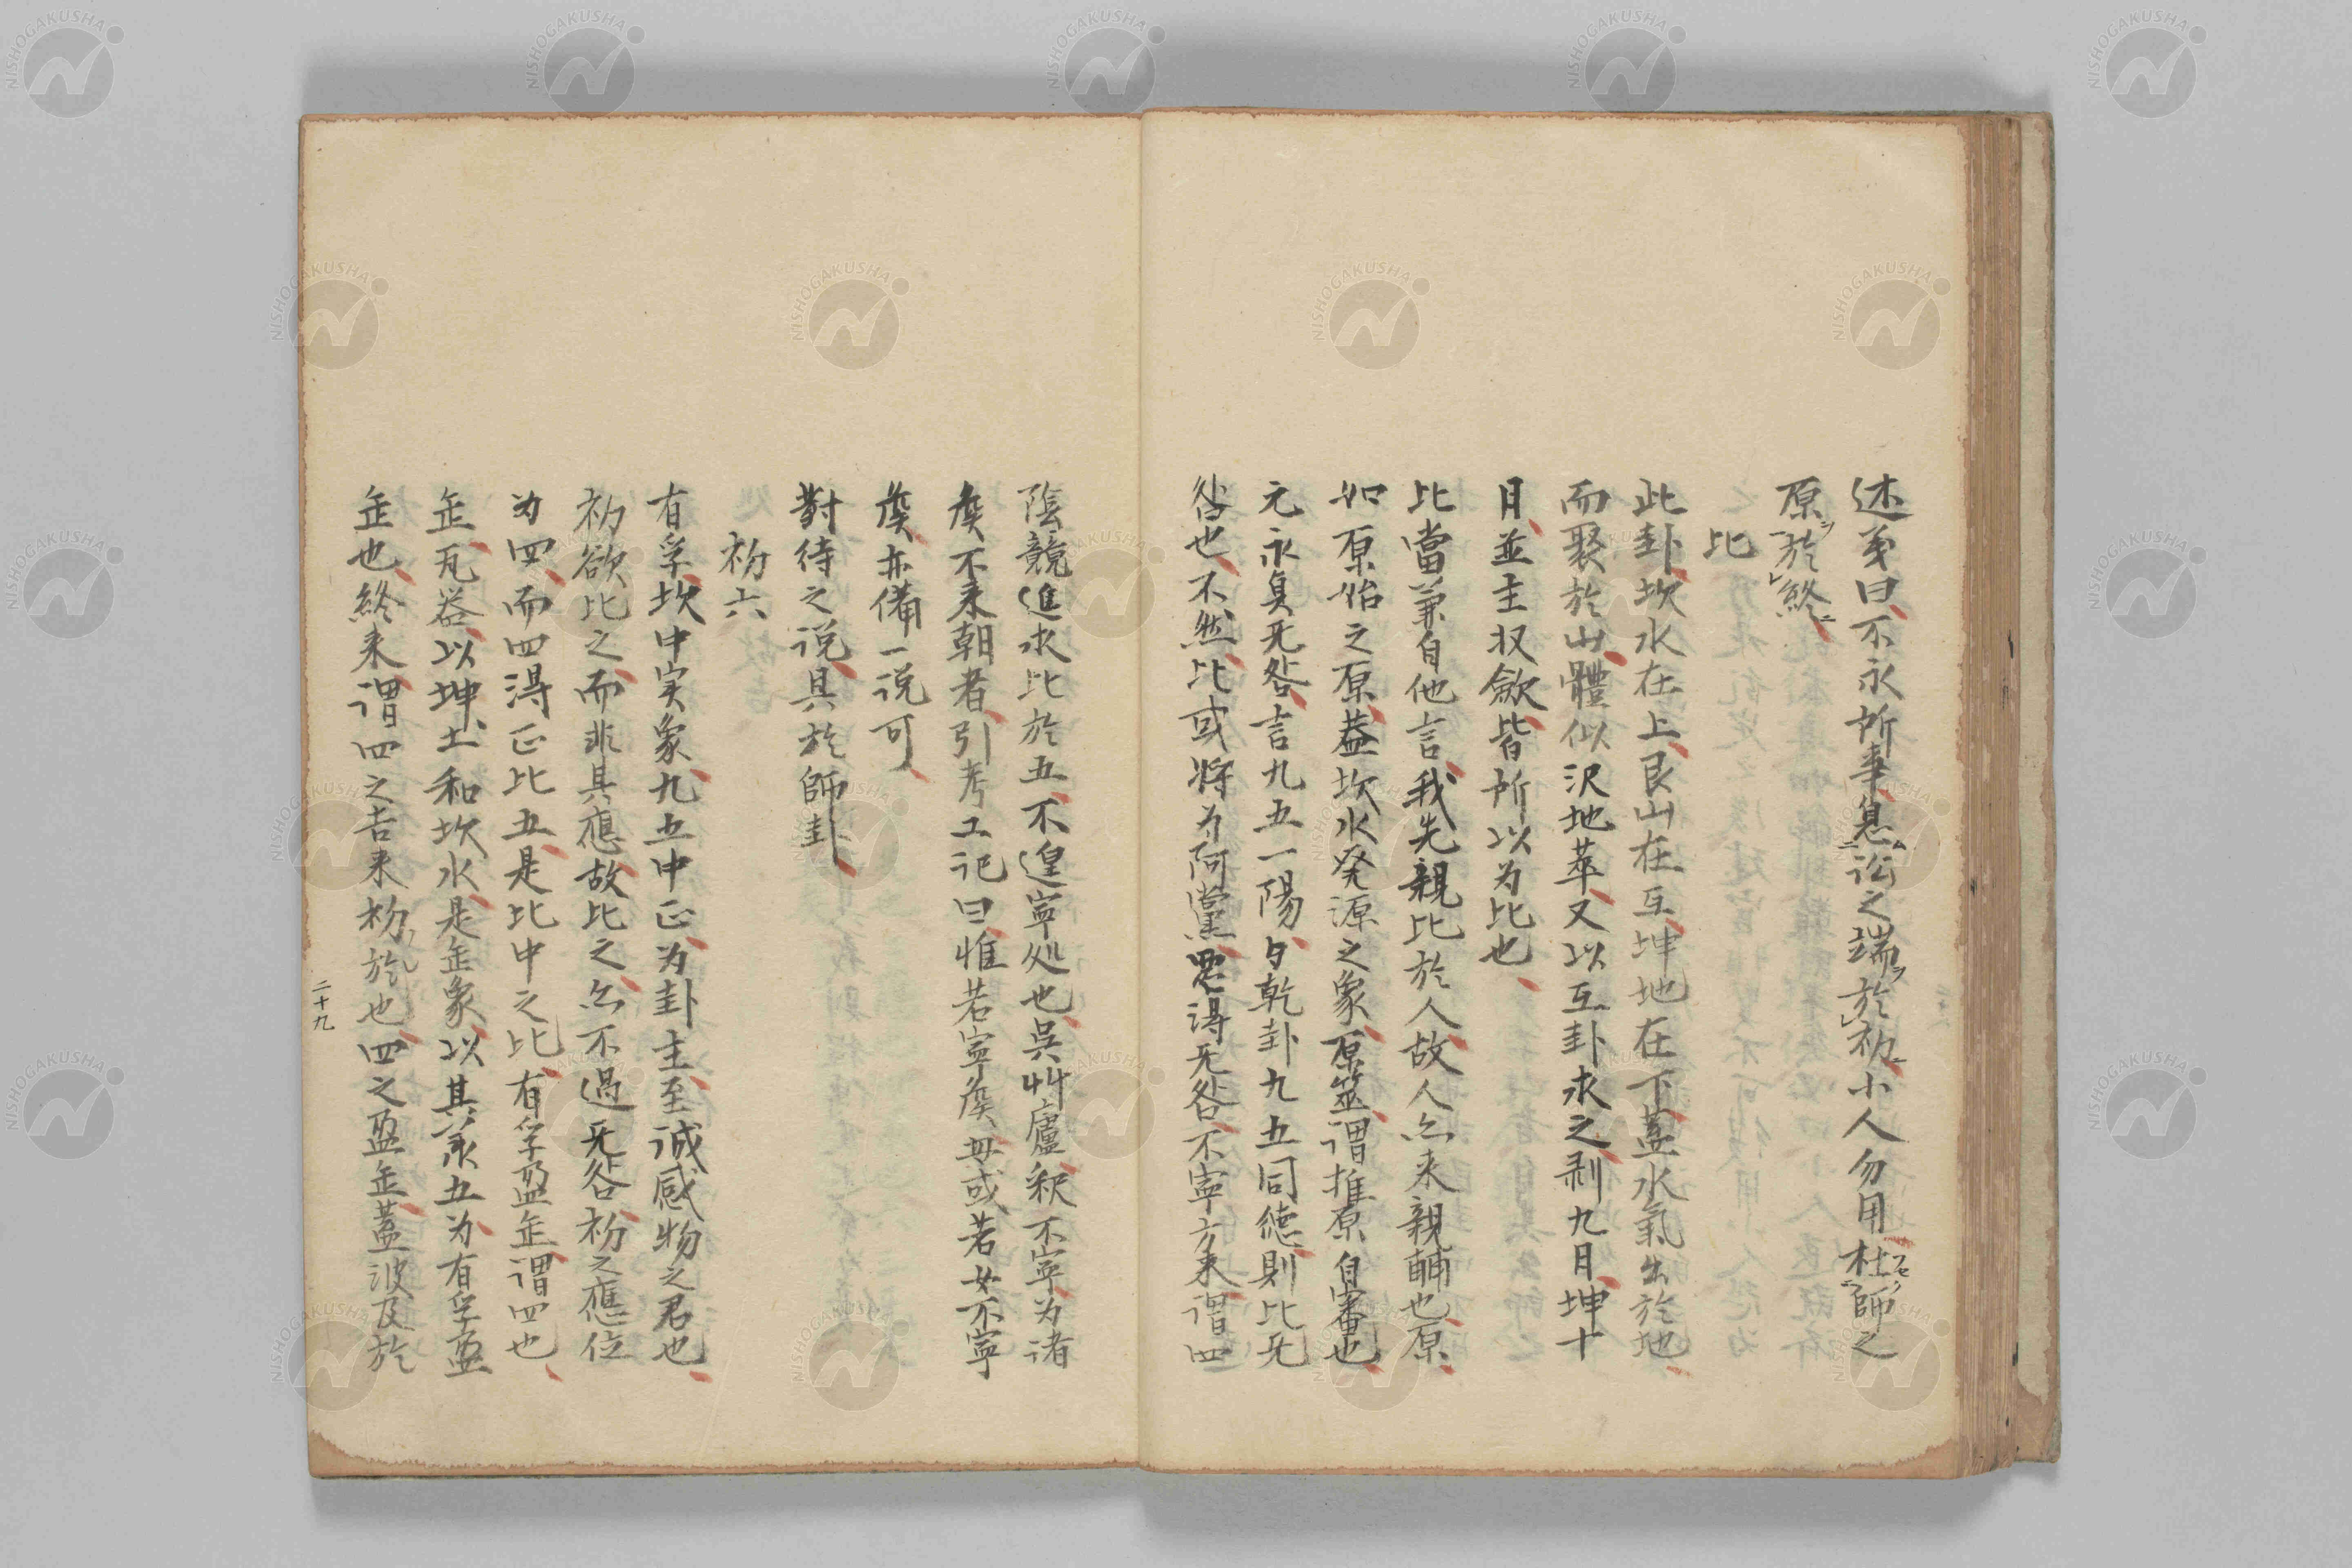 述義曰不永所事息訟之端於初小人勿用杜師之
原於終
比
此卦坎水在上艮山在互坤地在下蓋水氣出於地
而聚於山體似沢地萃又以互卦求之剥九月坤十
月並主収斂皆所以为比也
比當兼自他言我先親比於人故人亦来親輔也原
如原始之原蓋坎水発源之象原筮謂推原自審也
元永貞无咎言九五一陽与乾卦九五同徳則比无
咎也不然比或将为阿黨悪得无咎不寧方来謂四
陰競進求比於五不遑寧処也呉艸廬釈不寧为诸
矦不来朝者引考工记曰惟若寧矦毋或若女不寧
矦亦備一说可
對待之说具於師卦
初六
有孚坎中实象九五中正为卦主至诚感物之君也
初欲比之而非其應故比之亦不過无咎初之應位
为四而四得正比五是比中之比有孚盈缶謂四也
缶瓦器以坤土和坎水是缶象以其承五为有孚盈
缶也終来謂四之吉来初於也四之盈缶蓋波及於
二十九
NISHOGAKUSHA